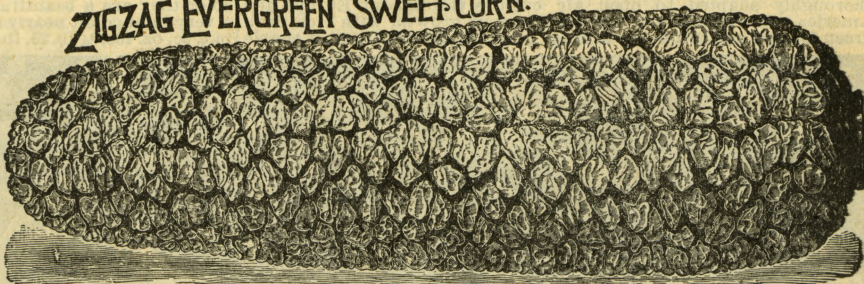 ZIGZAG EVERGREEN SWEET CORN.